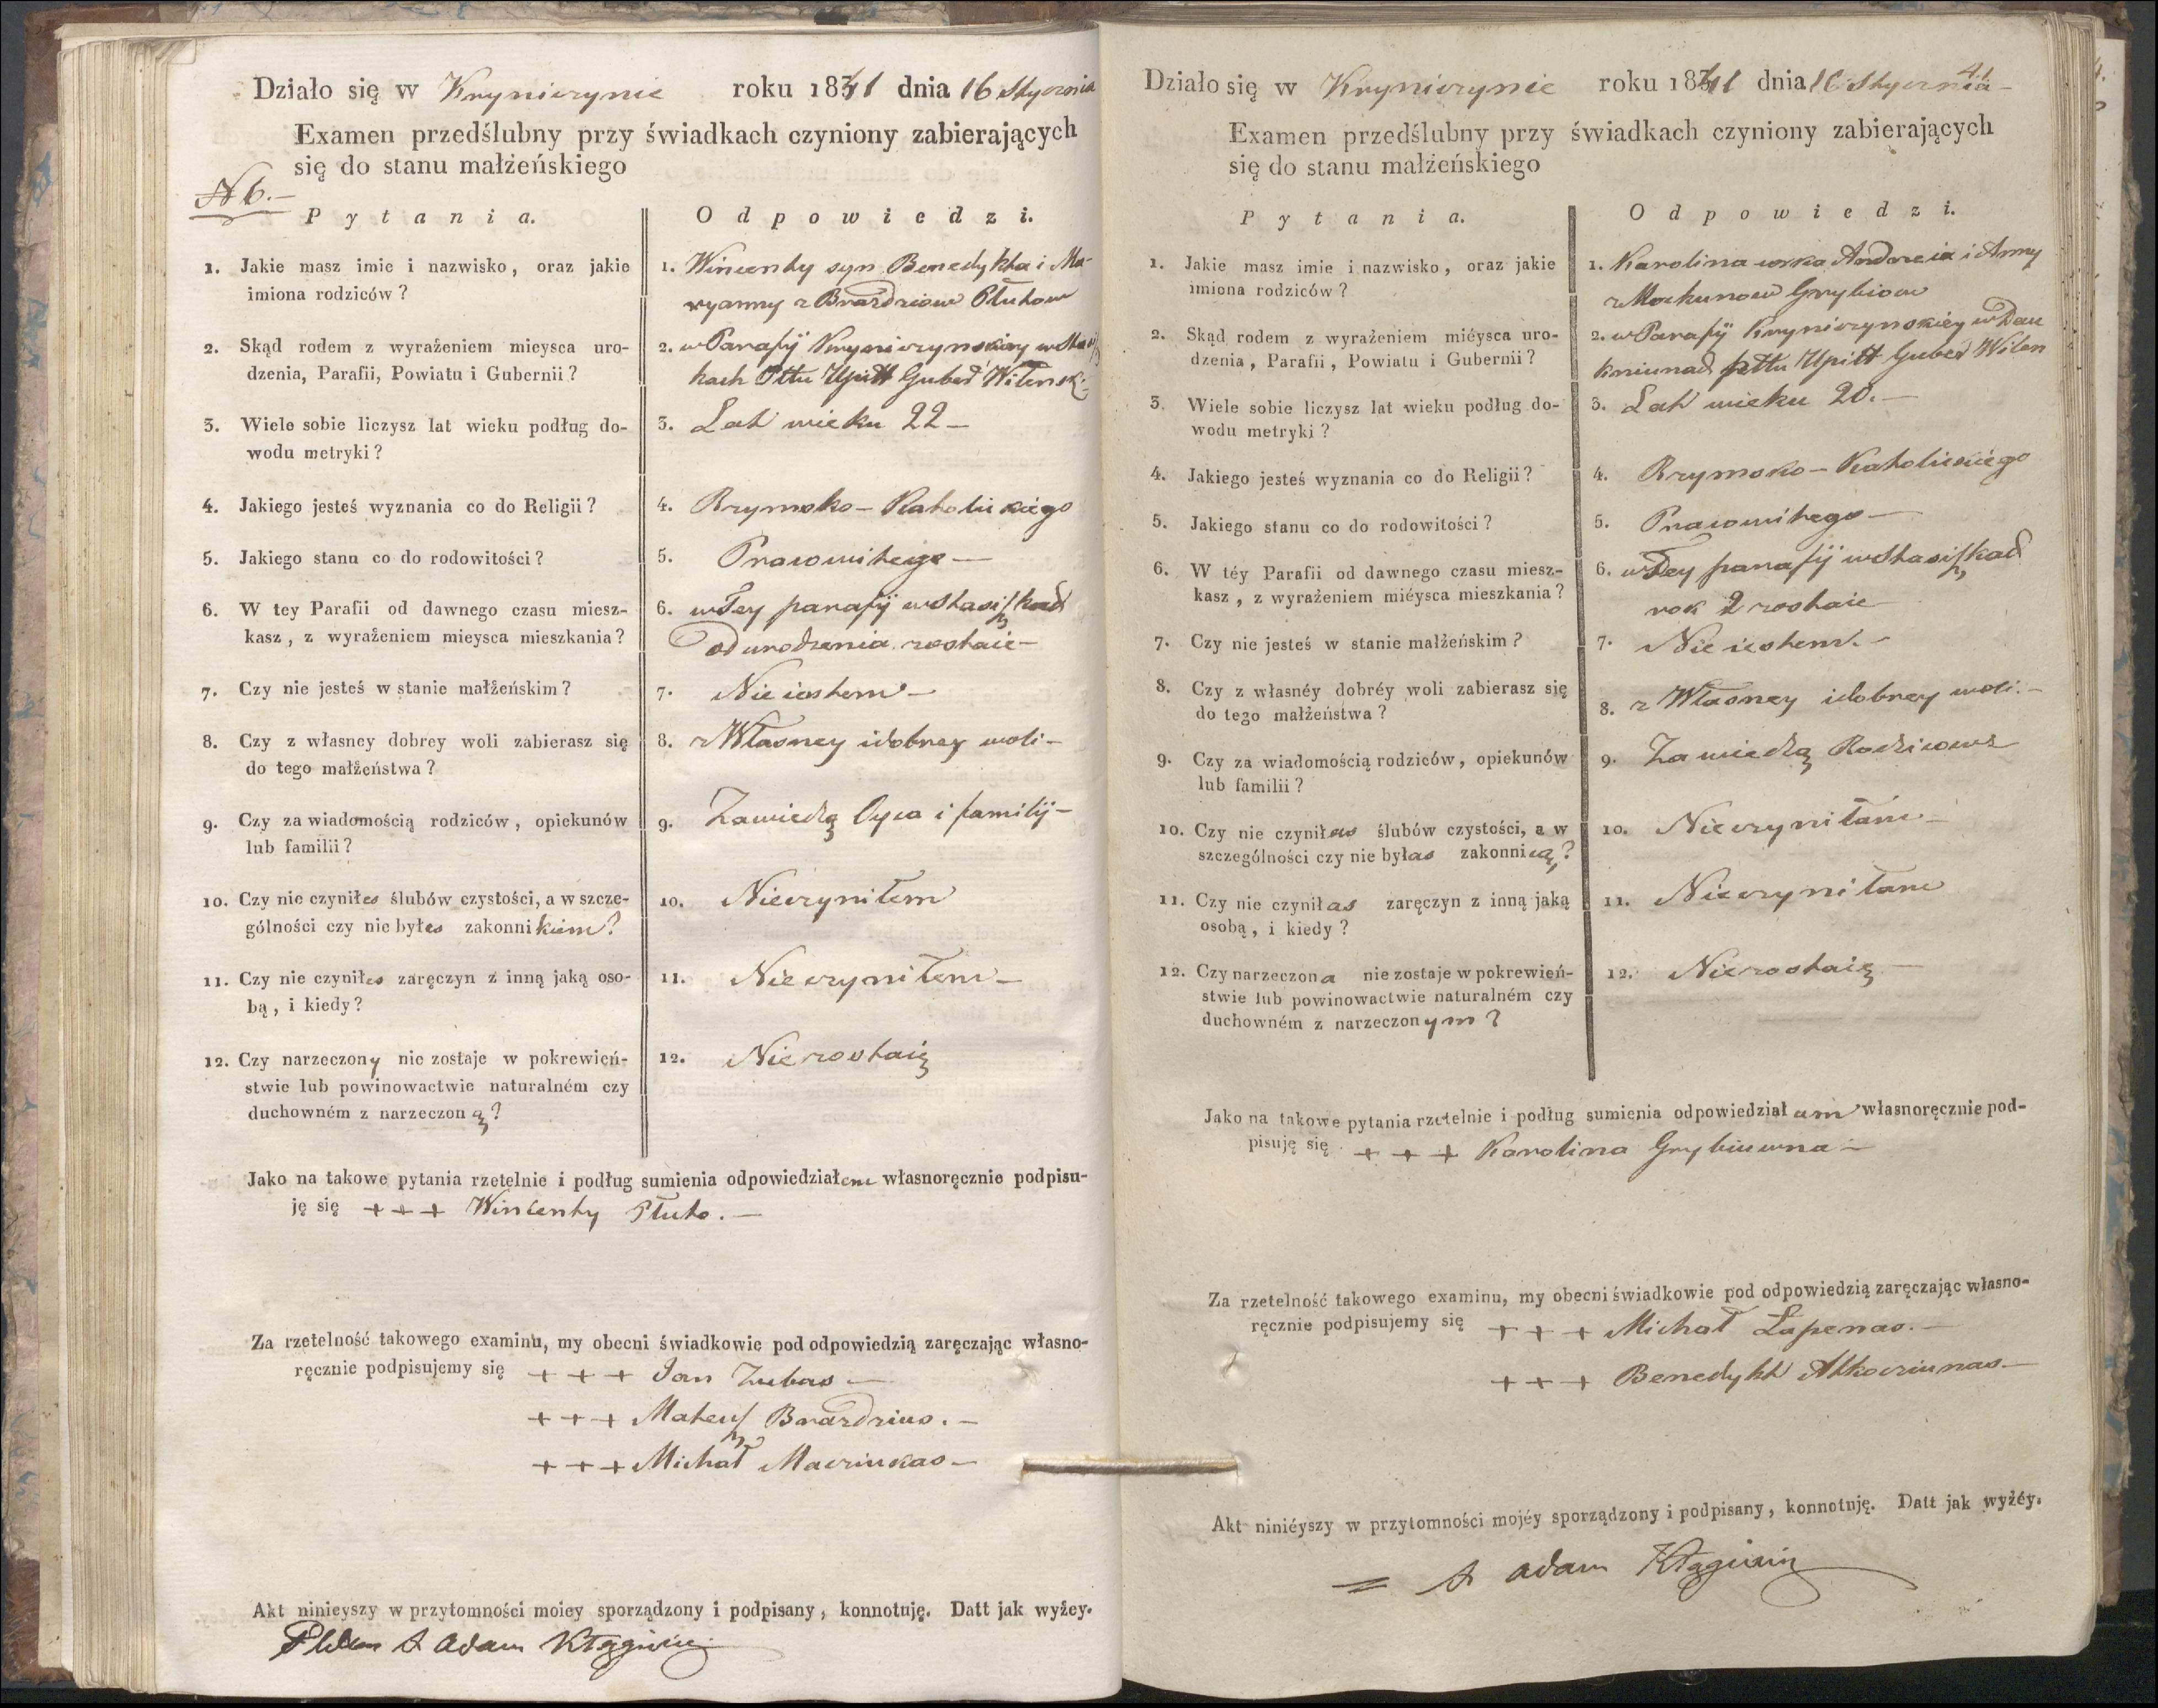 Działo się w Kryniczynie roku 1841 dnia 16 Stycznia
Examen przedślubny przy świadkach czyniony zabierających
się do stanu małżeńskiego
N 6.—
Pytania.
Odpowiedzi.
1. Jakie masz imie i nazwisko, oraz jakie
imiona rodziców?
1. Wincenty syn Benedykta i Ma-
ryanny z Brazdziow Płutow
2. Skąd rodem z wyrażeniem mieysca uro-
dzenia, Parafii, Powiatu i Gubernii?
2. w Parafij Kryniczynskiey w
Pttu Upitt Guber Wilensk:
3. Wiele sobie liczysz lat wieku podług do-
wodu metryki?
3. Lat wieku 22 —
4. Jakiego jesteś wyznania co do Religii?
4. Rzymsko — Katolickiego
5. Jakiego stanu co do rodowitości?
5. Prawowitego —
6. W tey Parafii od dawnego czasu miesz-
kasz, z wyrażeniem mieysca mieszkania?
6. w Tey parafij w Stasiszkach
od urodzenia zostaie —
7. Czy nie jesteś w stanie małżeńskim?
7. Nie iestem —
8. Czy z własney dobrey woli zabierasz się
do tego małżeństwa?
8. z Własney i dobrey woli —
9. Czy za wiadomością rodziców, opiekunów
lub familii?
9. Za wiedzą Oyca i familij —
10. Czy nie czyniłes ślubów czystości, a w szcze-
gólności czy nie byłes zakonnikiem?
10. Nieczyniłem
11. Czy nie czyniłes zaręczyn z inną jaką oso-
bą, i kiedy?
11. Nieczyniłem —
12. Czy narzeczony nie zostaje w pokrewień-
stwie lub powinowactwie naturalném czy
duchowném z narzeczoną?
12. Niezostaię
Jako na takowe pytania rzetelnie i podług sumienia odpowiedziałem własnoręcznie podpisu-
ję się + + + Wincenty Płuto. —
Za rzetelność takowego examinu, my obecni świadkowie pod odpowiedzią zaręczając własno-
ręcznie podpisujemy się + + + Jan Zubas —
+ + + Mateusz Brazdzius. —
+ + + Michał Macziukas —
Akt ninieyszy w przytomności moiey sporządzony i podpisany, konnotuję. Datt jak wyżey.
Adam
41
Działo się w Kryniczynie roku 1841 dnia 16 Stycznia —
Examen przedślubny przy świadkach czyniony zabierających
się do stanu małżeńskiego
Pytania.
Odpowiedzi.
1. Jakie masz imie i nazwisko, oraz jakie
imiona rodziców?
1. Karolina corka Andrzeia i Anny
z Mockunow Grybiow
2. Skąd rodem z wyrażeniem miéysca uro-
dzenia, Parafii, Powiatu i Gubernii?
2. w Parafij Kryniczynskiey w Dau
kniunach pttu Upitt Guber Wilen
3. Wiele sobie liczysz lat wieku podług do-
wodu metryki?
3. Lat wieku 20. —
4. Jakiego jesteś wyznania co do Religii?
4. Rzymsko — Katolickiego
5. Jakiego stanu co do rodowitości?
5. Prawowitego —
6. W téy Parafii od dawnego czasu miesz-
kasz, z wyrażeniem miéysca mieszkania?
6. w Tey parafij w Stasiszkach
rok 2 zostaie
7. Czy nie jesteś w stanie małżeńskim?
7. Nie iestem. —
8. Czy z własnéy dobréy woli zabierasz się
do tego małżeństwa?
8. z Własney i dobrey woli. —
9. Czy za wiadomością rodziców, opiekunów
lub familii?
9. Za wiedzą Rodzicow
10. Czy nie czyniłas ślubów czystości, a w
szczególności czy nie byłas zakonnicą?
10. Nieczyniłam —
11. Czy nie czyniłas zaręczyn z inną jaką
osobą, i kiedy?
11. Nieczyniłam
12. Czy narzeczona nie zostaje w pokrewień-
stwie lub powinowactwie naturalném czy
duchowném z narzeczonym?
12. Niezostaię —
Jako na takowe pytania rzetelnie i podług sumienia odpowiedziałam własnoręcznie pod-
pisuję się + + + Karolina Grybiuwna —
Za rzetelność takowego examinu, my obecni świadkowie pod odpowiedzią zaręczając własno-
ręcznie podpisujemy się + + + Michał Łapenas. —
+ + + Benedykt Atkocziunas —
Akt niniéyszy w przytomności mojéy sporządzony i podpisany, konnotuję. Datt jak wyżéy.
Adam